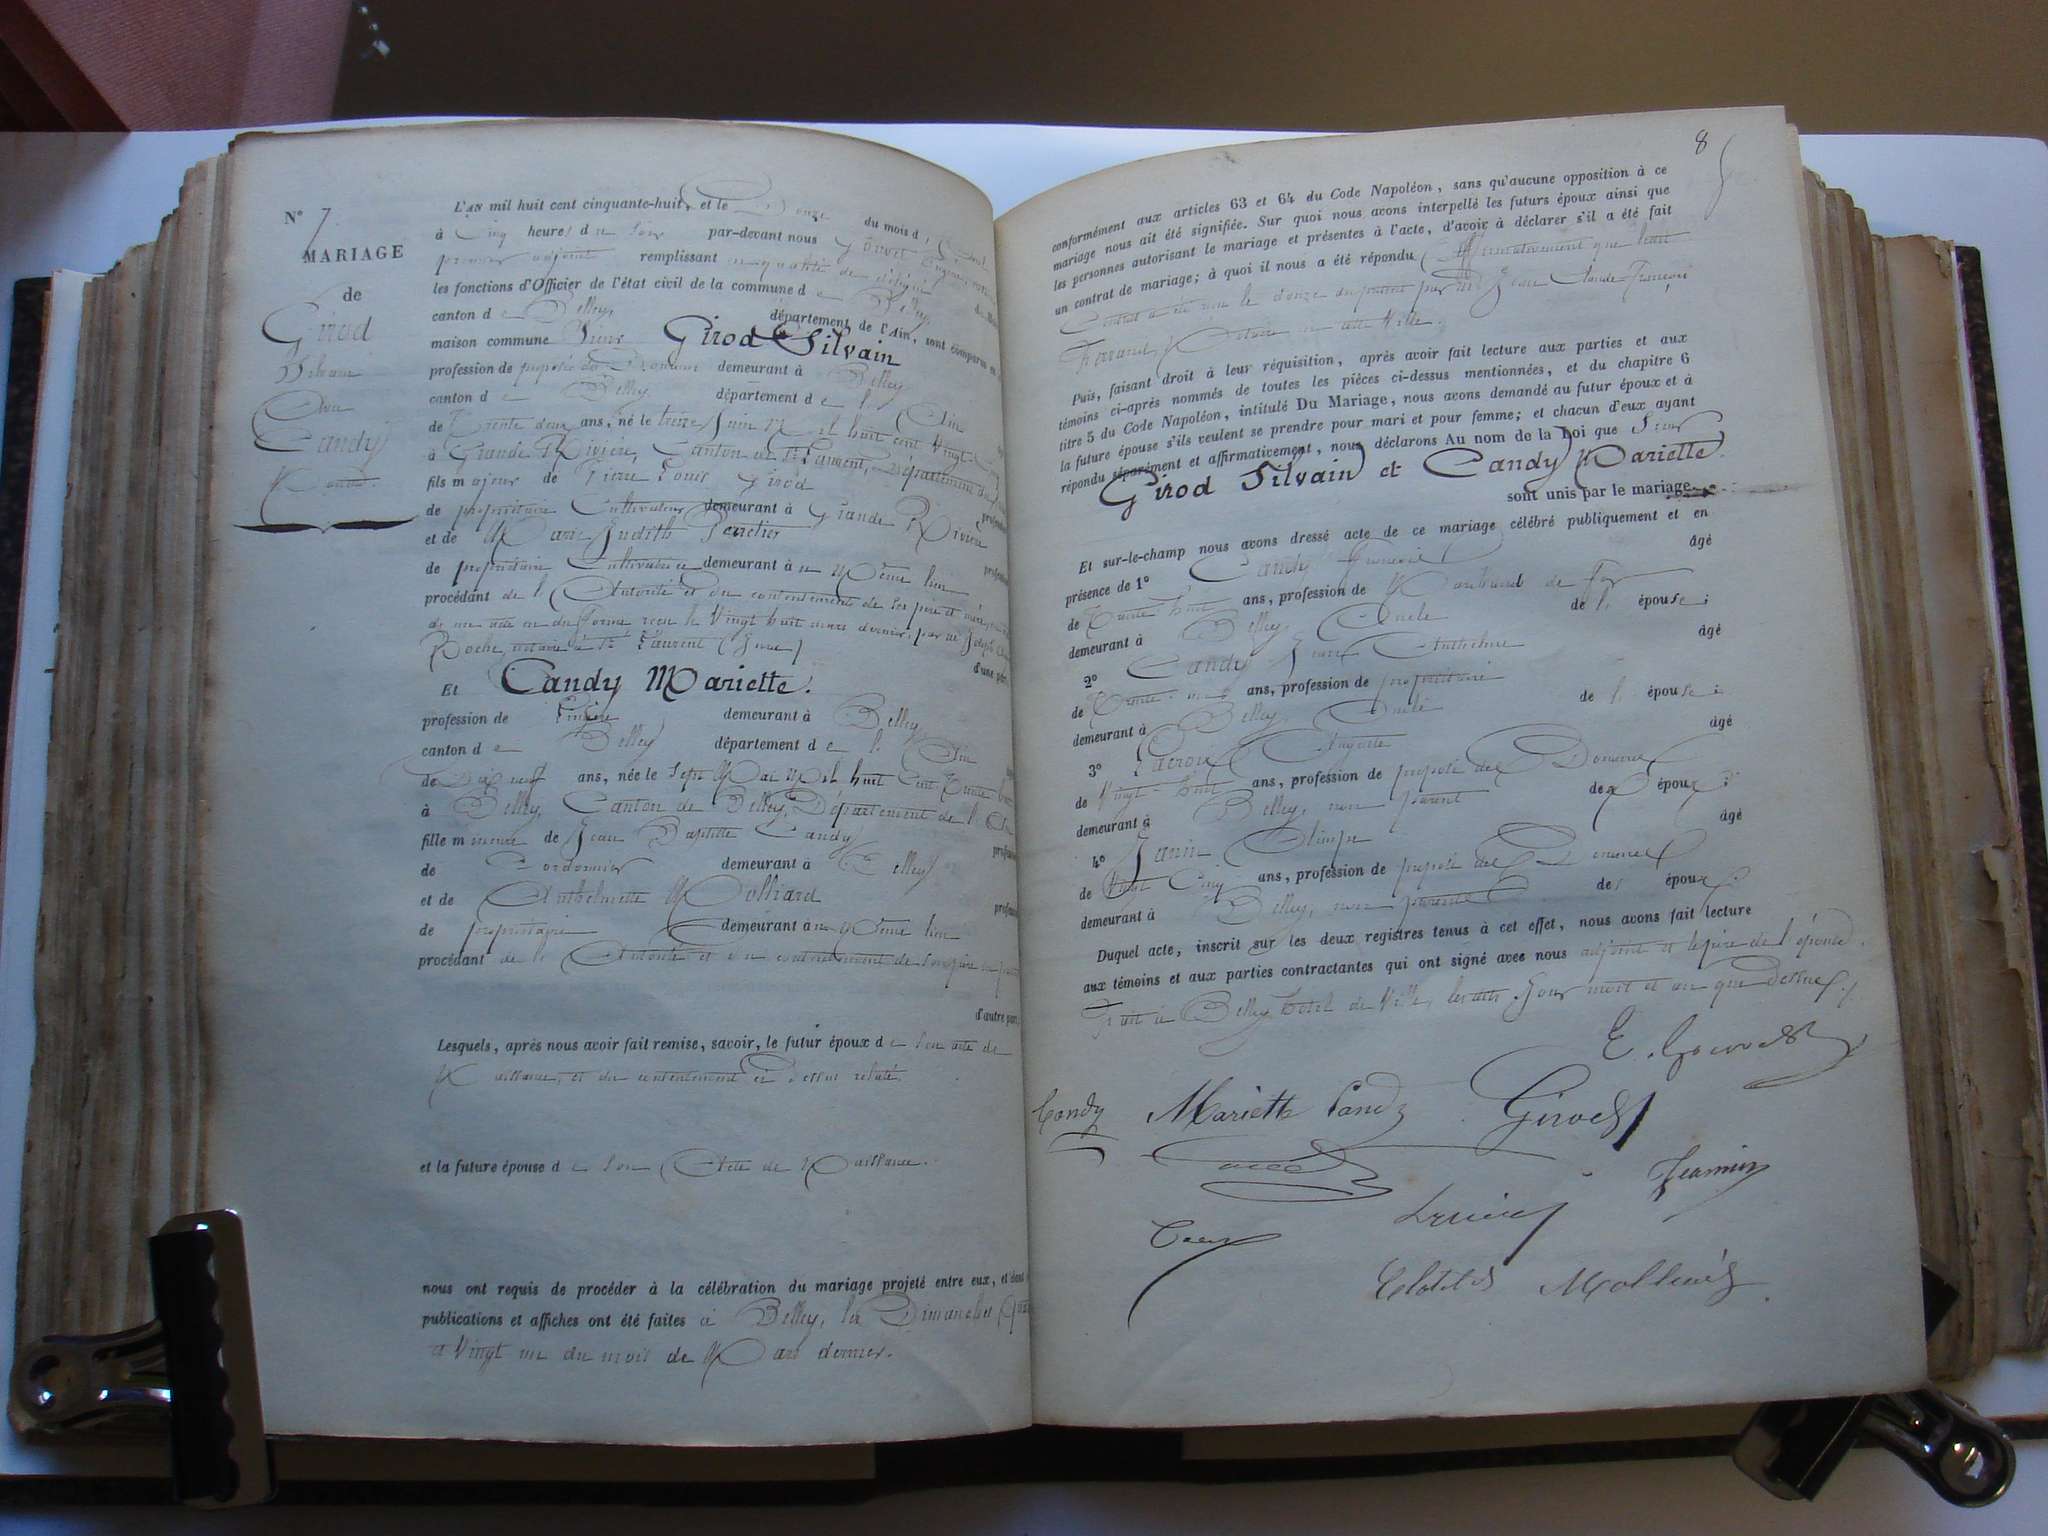 N° 7
MARIAGE
de
Girod
Silvain
Avec
Candy
L'AN mil huit cent cinquante-huit, et le Douze du mois d
à Cinq heures du Soir par-devant nous
premier adjoint remplissant en qualité de délégué
les fonctions d'Officier de l'état civil de la commune de Belley,
canton de Belley, département de l'Ain, sont comparus en
maison commune Sieur Girod Silvain
profession de préposé des Domaines demeurant à Belley
canton de Belley département de l'Ain
de Trente deux ans, né le treize Juin Mil huit cent Vingt
à Grande Rivière, Canton de St Laurent, Département du
fils majeur de Pierre Louis Girod
de propriétaire Cultivateur demeurant à Grande Rivière
et de Marie Judith
de propriétaire Cultivatrice demeurant à u Même lieu
procédant de l'Autorité et du consentement de ses père et mère,
reçu le Vingt huit mars dernier, par Me Joseph
Roche, notaire à St Laurent (Jura) d'une part
Et Candy Mariette.
profession de Lingère demeurant à Belley
canton de Belley département de l'Ain
de Dix neuf ans, née le Sept Mai Mil huit Cent Trente huit
à Belley, Canton de Belley, Département de l'Ain
fille mineure de Jean Baptiste Candy
de Cordonnier demeurant à Belley
et de Anthelmette Molliard
de propriétaire demeurant à u Même lieu
procédant de l'Autorité et du consentement de son père
d'autre part.
Lesquels, après nous avoir fait remise, savoir, le futur époux de son acte de
Naissance, et du consentement ci dessus relaté,
et la future épouse de son Acte de Naissance.
nous ont requis de procéder à la célébration du mariage projeté entre eux, et dont
publications et affiches ont été faites à Belley, les Dimanches
Vingt un du mois de Mars dernier.
8
conformément aux articles 63 et 64 du Code Napoléon, sans qu'aucune opposition à ce
mariage nous ait été signifiée. Sur quoi nous avons interpellé les futurs époux ainsi que
les personnes autorisant le mariage et présentes à l'acte, d'avoir à déclarer s'il a été fait
un contrat de mariage; à quoi il nous a été répondu Affirmativement que ledit
Contrat a été reçu le douze du présent par Me Jean Claude François
Notaire en cette Ville.
Puis, faisant droit à leur réquisition, après avoir fait lecture aux parties et aux
témoins ci-après nommés de toutes les pièces ci-dessus mentionnées, et du chapitre 6
titre 5 du Code Napoléon, intitulé Du Mariage, nous avons demandé au futur époux et à
la future épouse s'ils veulent se prendre pour mari et pour femme; et chacun d'eux ayant
répondu séparément et affirmativement, nous déclarons Au nom de la Loi que Sieur
Girod Silvain et Candy Mariette.
sont unis par le mariage.
Et sur-le-champ nous avons dressé acte de ce mariage célébré publiquement et en
présence de 1° Candy âgé
de Trente huit ans, profession de Marchand de fer
demeurant à Belley Oncle de l'épouse;
2° Candy Jean Anthelme âgé
de Trente ans, profession de propriétaire
demeurant à Belley, Oncle de l'épouse;
3° Lacroix Auguste âgé
de Vingt-huit ans, profession de préposé des Domaines
demeurant à Belley, non parent des époux;
4° Janin Olimpe âgé
de Vingt Cinq ans, profession de préposé des Domaines
demeurant à Belley, non parente des époux;
Duquel acte, inscrit sur les deux registres tenus à cet effet, nous avons fait lecture
aux témoins et aux parties contractantes qui ont signé avec nous adjoint et le père de l'épouse.
Fait à Belley, hotel de Ville, lesdits Jour mois et an que dessus.
Candy Mariette Candy Girod